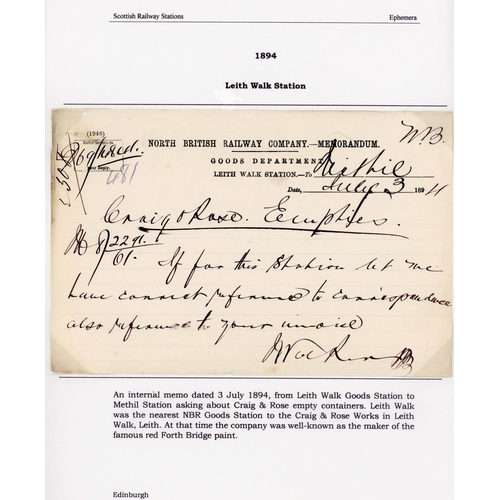 Scottish Railway Stations Ephemera
1894
Leith Walk Station
(1946)
N.B.
NORTH BRITISH RAILWAY COMPANY.—MEMORANDUM.
GOODS DEPARTMENT
LEITH WALK STATION.—To Methil
Date, July 3 1894
Craig & Rose. Empties.
If for this Station let me
have correct reference to correspondence
also reference to your invoice
An internal memo dated 3 July 1894, from Leith Walk Goods Station to
Methil Station asking about Craig & Rose empty containers. Leith Walk
was the nearest NBR Goods Station to the Craig & Rose Works in Leith
Walk, Leith. At that time the company was well-known as the maker of the
famous red Forth Bridge paint.
Edinburgh